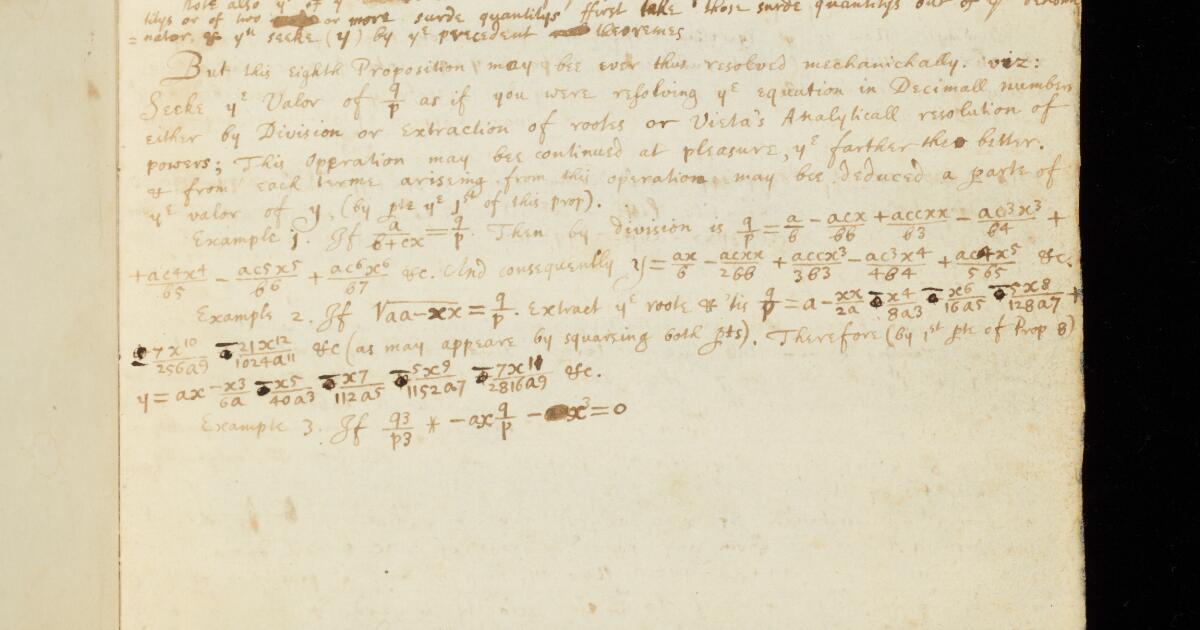 Note also yᵗ of y
titys or of two or more surde quantitys, ffirst take those surde quantitys out of yᵉ denom
=nator, & yⁿ seeke (y) by yᵉ precedent theoremes
But this Eighth Proposition may bee ever thus resolved mechanichally. viz:
Seeke yᵉ Valor of q/p as if you were resolving yᵉ equation in Decimall numbers
either by Division or Extraction of rootes or Vieta's Analyticall resolution of
powers; This Operation may bee continued at pleasure, yᵉ farther the better.
& from each terme ariseing from this operation may bee deduced a parte of
yᵉ valor of y, (by pte yᵉ 1ˢᵗ of this prop).
Example 1. If a/(b+cx) = q/p. Then by division is q/p = a/b − acx/bb + accxx/b3 − ac3x3/b4 +
+ ac4x4/b5 − ac5x5/b6 + ac6x6/b7 &c. And consequently y = ax/b − acxx/2bb + accx3/3b3 − ac3x4/4b4 + ac4x5/5b5 &c.
Example 2. If √(aa−xx) = q/p. Extract yᵉ roote & 'tis q/p = a − xx/2a − x4/8a3 − x6/16a5 − 5x8/128a7 +
− 7x10/256a9 − 21x12/1024a11 &c (as may appeare by squareing both pts). Therefore (by 1ˢᵗ pte of Prop 8)
y = ax − x3/6a − x5/40a3 − x7/112a5 − 5x9/1152a7 − 7x11/2816a9 &c.
Example 3. If q3/p3 * − ax q/p − x3 = 0